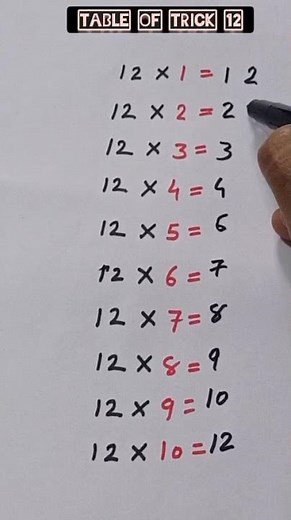 TABLE OF TRICK 12
12 × 1 = 1 2
12 × 2 = 2
12 × 3 = 3
12 × 4 = 4
12 × 5 = 6
12 × 6 = 7
12 × 7 = 8
12 × 8 = 9
12 × 9 = 10
12 × 10 = 12